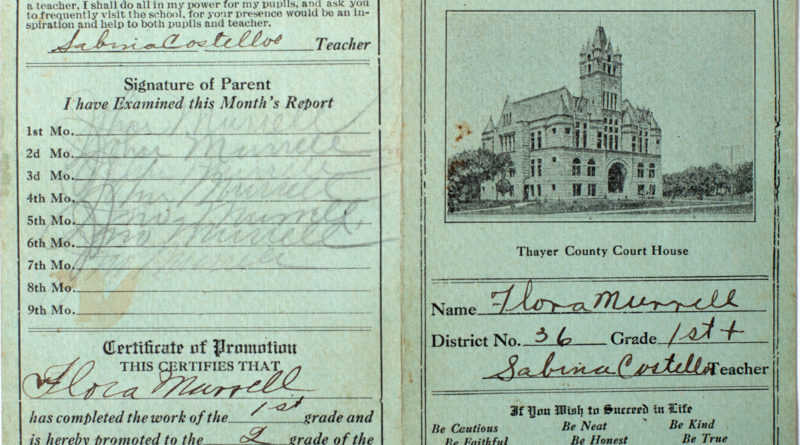 a teacher, I shall do all in my power for my pupils, and ask you
to frequently visit the school, for your presence would be an in-
spiration and help to both pupils and teacher.
Sabina Costelloe Teacher
Signature of Parent
I have Examined this Month's Report
1st Mo. Murrell
2d Mo. John Murrell
3d Mo. Murrell
4th Mo. Jno Murrell
5th Mo. Jno Murrell
6th Mo. Jno Murrell
7th Mo. Jno Murrell
8th Mo.
9th Mo.
Certificate of Promotion
THIS CERTIFIES THAT
Flora Murrell
has completed the work of the 1st grade and
is hereby promoted to the 2 grade of the
Thayer County Court House
Name Flora Murrell
District No. 36 Grade 1st +
Sabina Costelloe Teacher
If You Wish to Succeed in Life
Be Cautious Be Neat Be Kind
Be Faithful Be Honest Be True